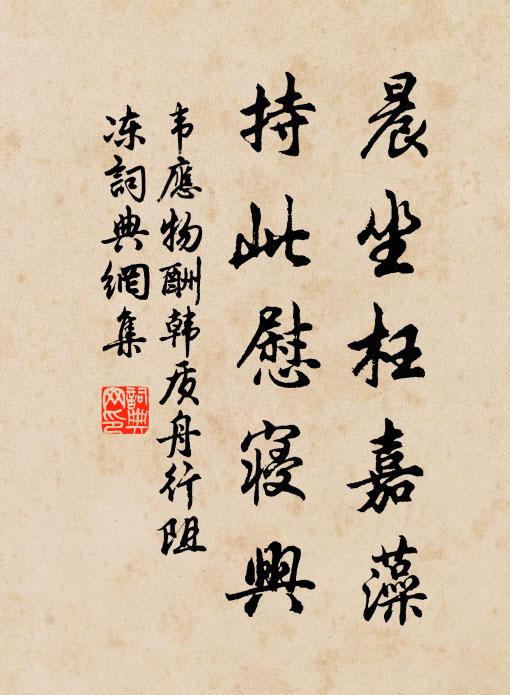 晨坐枉嘉藻
持此慰寝興
韦應物酬韩质舟行阻
冻詞典網集
詞典
网印